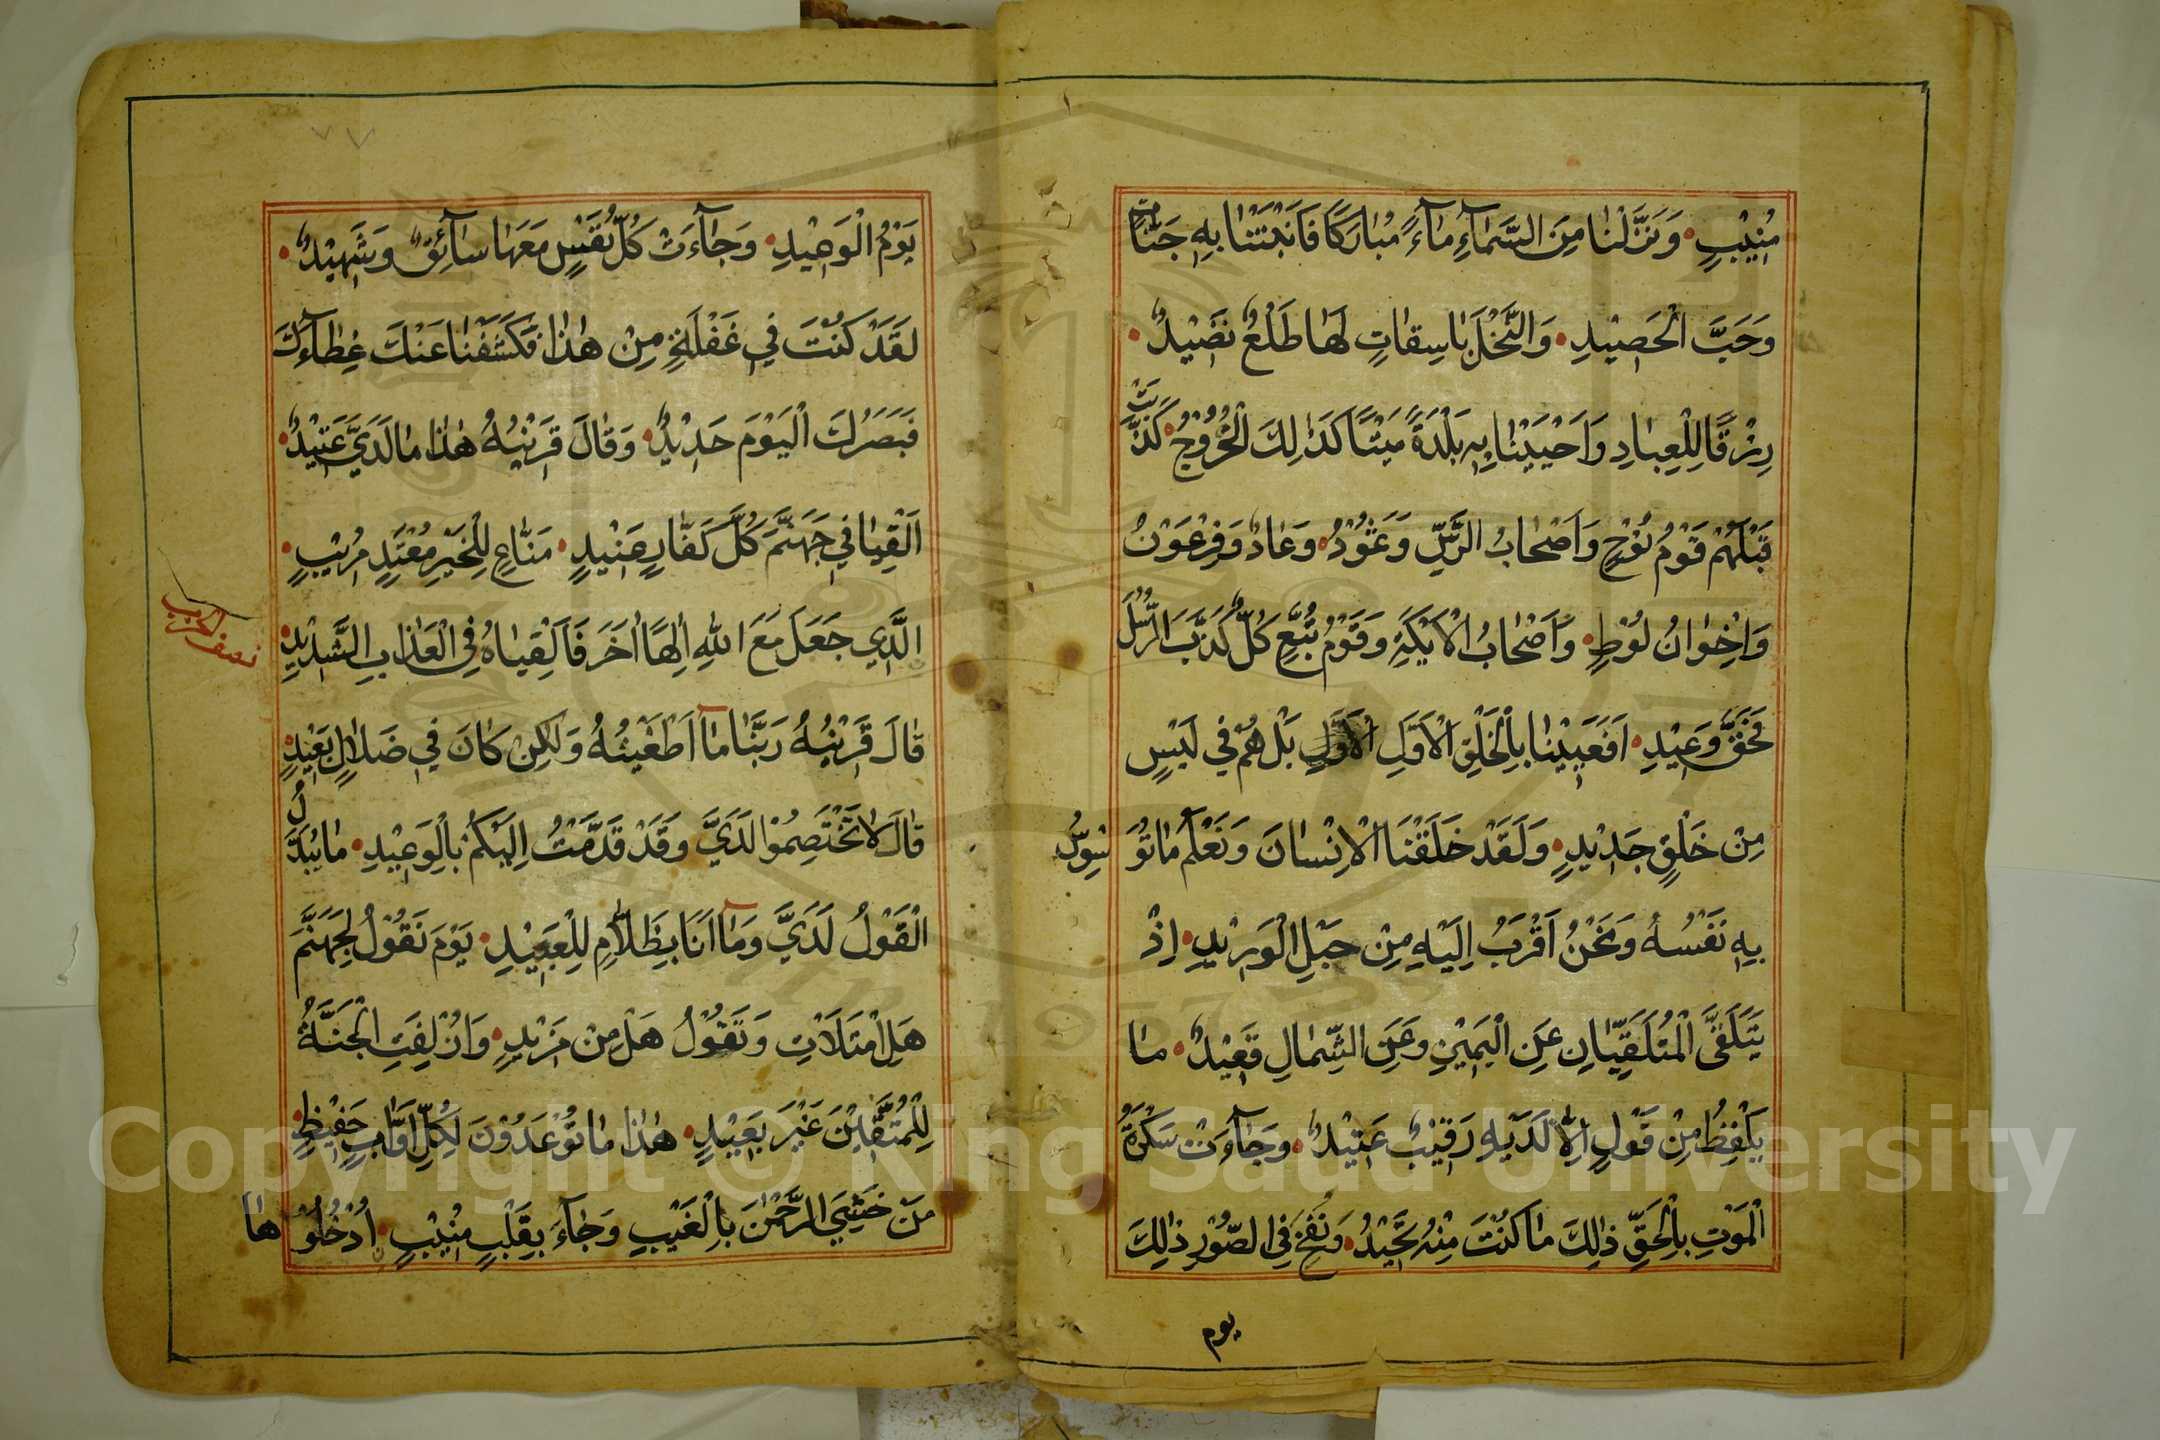 مُنِيْبٍ وَنَزَّلْنَا مِنَ السَّمَآءِ مَآءً مُبَارَكًا فَاَنْبَتْنَا بِهِ جَنَّاتٍ
وَحَبَّ الْحَصِيْدِ وَالنَّخْلَ بَاسِقَاتٍ لَهَا طَلْعٌ نَضِيْدٌ
رِزْقًا لِلْعِبَادِ وَاَحْيَيْنَا بِهِ بَلْدَةً مَيْتًا كَذٰلِكَ الْخُرُوْجُ كَذَّبَتْ
قَبْلَهُمْ قَوْمُ نُوْحٍ وَاَصْحَابُ الرَّسِّ وَثَمُوْدُ وَعَادٌ وَفِرْعَوْنُ
وَاِخْوَانُ لُوْطٍ وَاَصْحَابُ الْاَيْكَةِ وَقَوْمُ تُبَّعٍ كُلٌّ كَذَّبَ الرُّسُلَ
فَحَقَّ وَعِيْدِ اَفَعَيِيْنَا بِالْخَلْقِ الْاَوَّلِ الْاَوَّلِ بَلْ هُمْ فِي لَبْسٍ
مِنْ خَلْقٍ جَدِيْدٍ وَلَقَدْ خَلَقْنَا الْاِنْسَانَ وَنَعْلَمُ مَا تُوَسْوِسُ
بِهِ نَفْسُهُ وَنَحْنُ اَقْرَبُ اِلَيْهِ مِنْ حَبْلِ الْوَرِيْدِ اِذْ
يَتَلَقَّى الْمُتَلَقِّيَانِ عَنِ الْيَمِيْنِ وَعَنِ الشِّمَالِ قَعِيْدٌ مَا
يَلْفِظُ مِنْ قَوْلٍ اِلَّا لَدَيْهِ رَقِيْبٌ عَتِيْدٌ وَجَآءَتْ سَكْرَةُ
الْمَوْتِ بِالْحَقِّ ذٰلِكَ مَا كُنْتَ مِنْهُ تَحِيْدُ وَنُفِخَ فِي الصُّوْرِ ذٰلِكَ
يوم
يَوْمُ الْوَعِيْدِ وَجَآءَتْ كُلُّ نَفْسٍ مَعَهَا سَآئِقٌ وَشَهِيْدٌ
لَقَدْ كُنْتَ فِي غَفْلَةٍ مِنْ هٰذَا فَكَشَفْنَا عَنْكَ غِطَآءَكَ
فَبَصَرُكَ الْيَوْمَ حَدِيْدٌ وَقَالَ قَرِيْنُهُ هٰذَا مَا لَدَيَّ عَتِيْدٌ
اَلْقِيَا فِي جَهَنَّمَ كُلَّ كَفَّارٍ عَنِيْدٍ مَنَّاعٍ لِلْخَيْرِ مُعْتَدٍ مُرِيْبٍ
الَّذِي جَعَلَ مَعَ اللهِ اِلٰهًا اٰخَرَ فَاَلْقِيَاهُ فِي الْعَذَابِ الشَّدِيْدِ
نصف الحزب
قَالَ قَرِيْنُهُ رَبَّنَا مَآ اَطْغَيْتُهُ وَلٰكِنْ كَانَ فِي ضَلَالٍ بَعِيْدٍ
قَالَ لَا تَخْتَصِمُوْا لَدَيَّ وَقَدْ قَدَّمْتُ اِلَيْكُمْ بِالْوَعِيْدِ مَا يُبَدَّلُ
الْقَوْلُ لَدَيَّ وَمَآ اَنَا بِظَلَّامٍ لِلْعَبِيْدِ يَوْمَ نَقُوْلُ لِجَهَنَّمَ
هَلِ امْتَلَاْتِ وَتَقُوْلُ هَلْ مِنْ مَزِيْدٍ وَاُزْلِفَتِ الْجَنَّةُ
لِلْمُتَّقِيْنَ غَيْرَ بَعِيْدٍ هٰذَا مَا تُوْعَدُوْنَ لِكُلِّ اَوَّابٍ حَفِيْظٍ
مَنْ خَشِيَ الرَّحْمٰنَ بِالْغَيْبِ وَجَآءَ بِقَلْبٍ مُنِيْبٍ اُدْخُلُوْهَا
Copyright © King Saud University